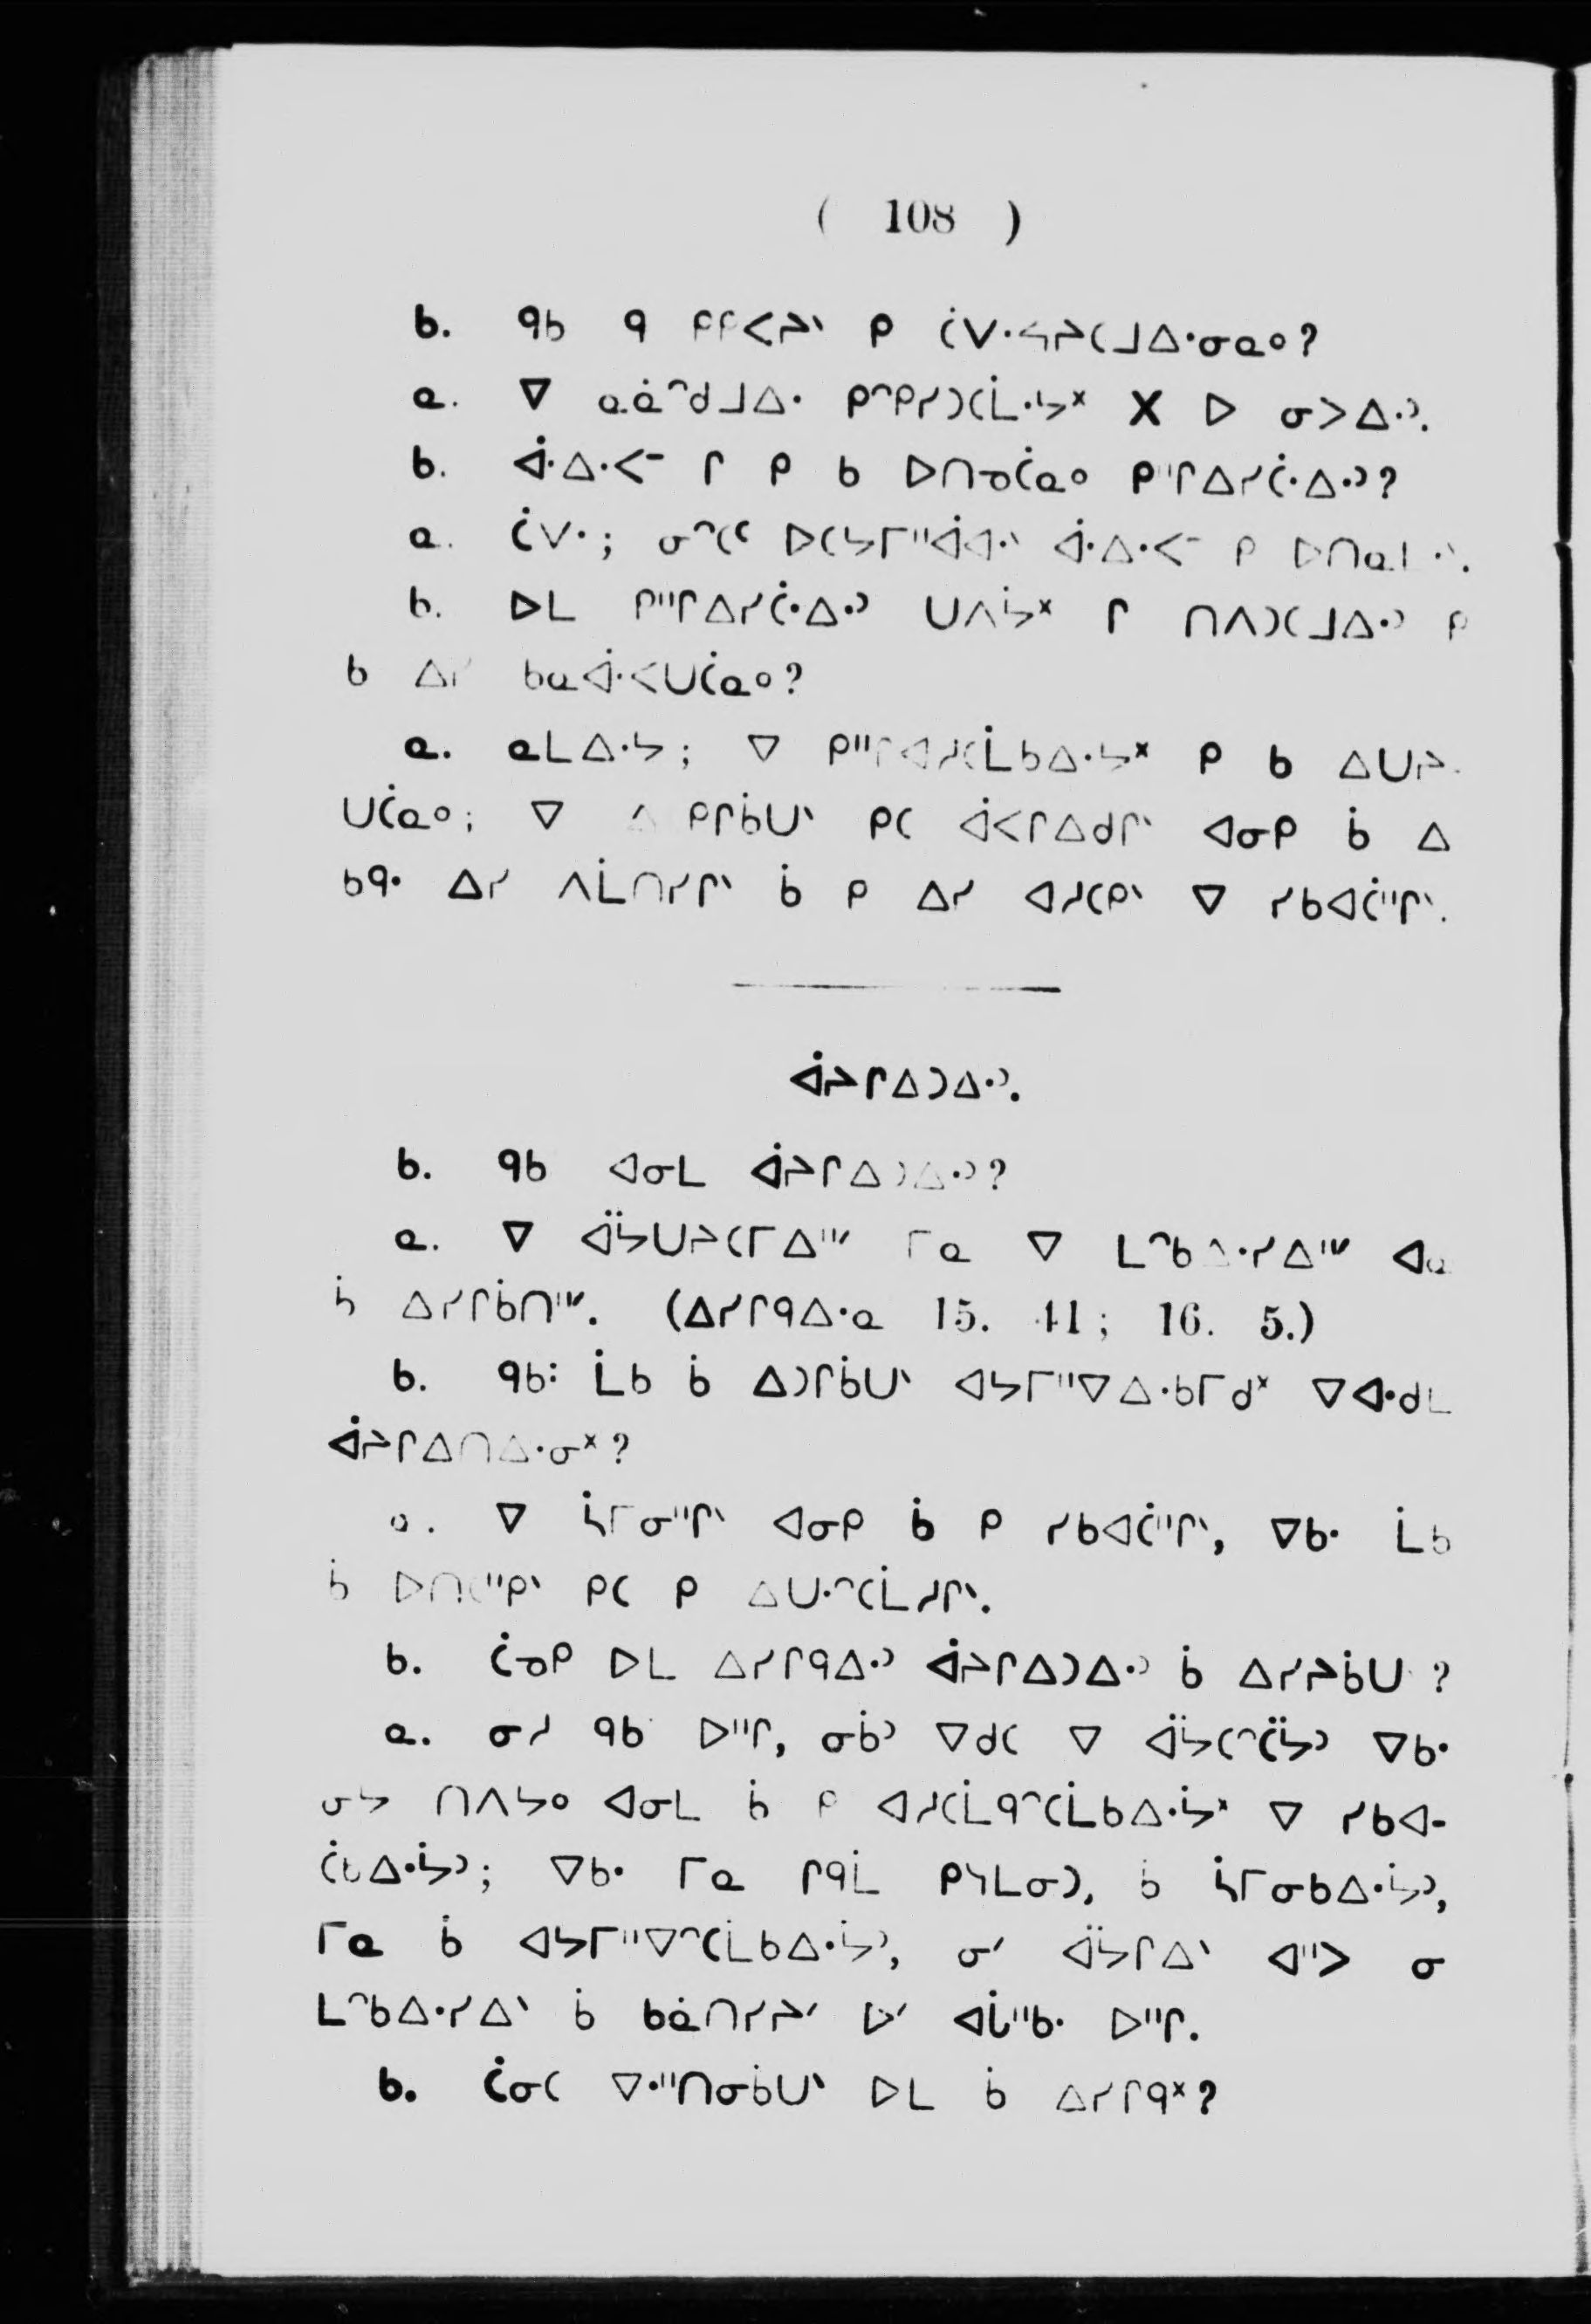 ( 108 )
ᑲ. ᑫᑲ ᑫ ᑭᑭᐸᔨᐠ ᑭ ᑖᐯᐧᓴᔨᑕᒧᐃᐧᓂᓇᐤ?
ᓇ. ᐁ ᓇᓈᐢᑯᒧᐃᐧ ᑭᐢᑭᓯᑐᑕᒫᐧᔭᕽ X ᐅ ᓂᐳᐃᐧᐣ.
ᑲ. ᐚᐃᐧᐸᐨ ᒋ ᑭ ᑲ ᐅᑎᓀᑖᓇᐤ ᑭᐦᒋᐃᓯᑖᐧᐃᐧᐣ?
ᓇ. ᑖᐯᐧ; ᓂᐢᑕᒼ ᐅᑕᔭᒥᐦᐋᐊᐧᐠ ᐚᐃᐧᐸᐨ ᑭ
ᑲ. ᐅᒪ ᑭᐦᒋᐃᓯᑖᐧᐃᐧᐣ ᑌᐱᔮᕽ ᒋ ᑎᐱᑐᑕᒧᐃᐧᐣ ᑭ
ᑲ ᐃᓯ ᑲᓇᐚᐸᑌᑖᓇᐤ?
ᓇ. ᓇᒪᐃᐧᔭ; ᐁ ᑭᐦᒋᐊᓱᑕᒫᑲᐃᐧᔭᕽ ᑭ ᑲ ᐃᑌᔨ-
ᑌᑖᓇᐤ; ᐁ ᑭᒋᑳᑌᐠ ᑭᑕ ᐋᐸᒋᐃᑯᒋᐠ ᐊᓂᑭ ᑳ ᐃ
ᑲᑫᐧ ᐃᓯ ᐱᒫᑎᓯᒋᐠ ᑳ ᑭ ᐃᓯ ᐊᓱᑕᑭᐠ ᐁ ᓯᑲᐊᑖᐦᒋᐠ.
ᐋᔨᒋᐃᑐᐃᐧᐣ.
ᑲ. ᑫᑲ ᐊᓂᒪ ᐋᔨᒋᐃᑐᐃᐧᐣ?
ᓇ. ᐁ ᐋᔭᑌᔨᑕᒥᐃᐦᐟ ᒥᓇ ᐁ ᒪᐢᑲᐃᐧᓯᐃᐦᐟ ᐊᓇ
ᑳ ᐃᓯᒋᑳᑎᐦᐟ. (ᐃᓯᒋᑫᐃᐧᓇ 15. 41; 16. 5.)
ᑲ. ᑫᑲ: ᒫᑲ ᑳ ᐃᑐᒋᑳᑌᐠ ᐊᔭᒥᐦᐁᐃᐧᑲᒥᑯᕽ ᐁᐊᐧᑯᒪ
ᐋᔨᒋᐃᑎᐃᐧᓂᕽ?
ᓇ. ᐁ ᓵᒥᓂᐦᒋᐠ ᐊᓂᑭ ᑳ ᑭ ᓯᑲᐊᑖᐦᒋᐠ, ᐁᑲᐧ ᒫᑲ
ᑳ ᐅᑎᑕᐦᑭᐠ ᑭᑕ ᑭ ᐃᑌᐧᐢᑕᒫᓱᒋᐠ.
ᑲ. ᑖᓀᑭ ᐅᒪ ᐃᓯᒋᑫᐃᐧᐣ ᐋᔨᒋᐃᑐᐃᐧᐣ ᑳ ᐃᓯᔨᑳᑌᐠ?
ᓇ. ᓂᓱ ᑫᑲ ᐅᐦᒋ, ᓂᑳᐣ ᐁᑯᑕ ᐁ ᐋᔭᑕᐢᑖᔭᐣ ᐁᑲᐧ
ᓂᔭ ᑎᐱᔭᐤ ᐊᓂᒪ ᑳ ᑭ ᐊᓱᑕᒫᑫᐢᑕᒫᑲᐃᐧᔮᕽ ᐁ ᓯᑲᐊ-
ᑖᑲᐃᐧᔮᐣ; ᐁᑲᐧ ᒥᓇ ᒋᑫᒫ ᑭᓴᒪᓂᑐ, ᑳ ᓵᒥᓂᑲᐃᐧᔮᐣ,
ᒥᓇ ᑳ ᐊᔭᒥᐦᐁᐢᑕᒫᑲᐃᐧᔮᐣ, ᓂᐟ ᐋᔭᒋᐃᐠ ᐊᐦᐳ ᓂ
ᒪᐢᑲᐃᐧᓯᐃᐠ ᑳ ᑲᓈᑎᓯᔨᐟ ᐅᐟ ᐊᒑᐦᑲᐧ ᐅᐦᒋ.
ᑲ. ᑖᓂᑕ ᐁᐧᐦᑎᓂᑳᑌᐠ ᐅᒪ ᑳ ᐃᓯᒋᑫᕽ?